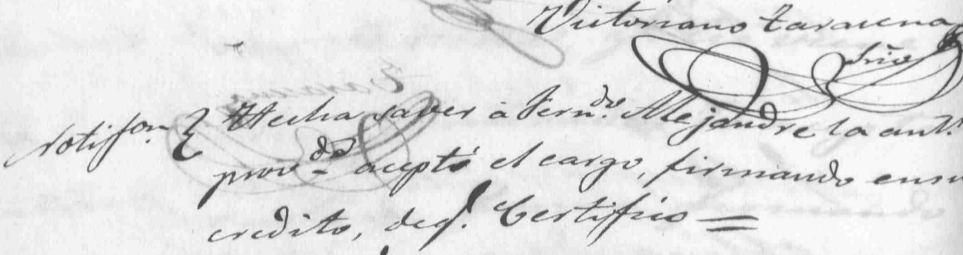 Victoriano Taracena
Srio
Notifon. Hecha saver á Ferndo. Alejandre la antr.
provda. aceptó el cargo, firmando ensu
credito, deqe. Certifico =